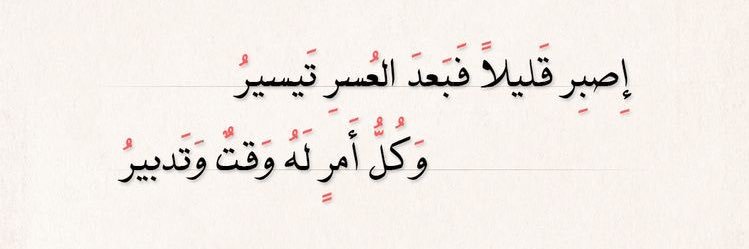 إِصبِر قَليلاً فَبَعدَ العُسرِ تَيسيرُ
وَكُلُّ أَمرٍ لَهُ وَقتٌ وَتَدبيرُ